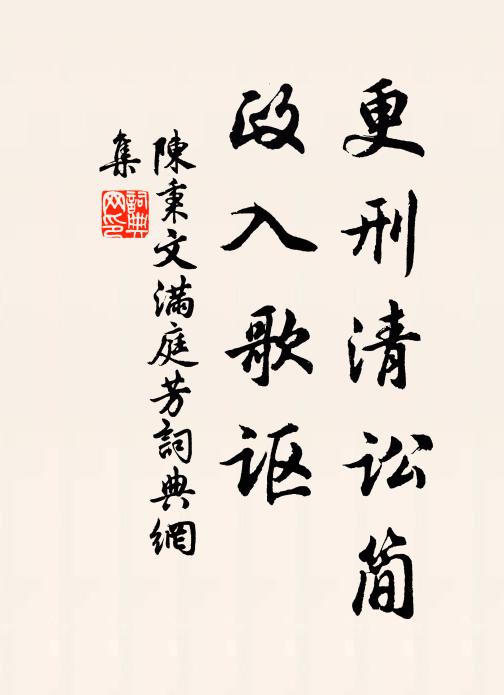 更刑清讼简
政入歌讴
陳秉文满庭芳詞典網
集
詞典网印